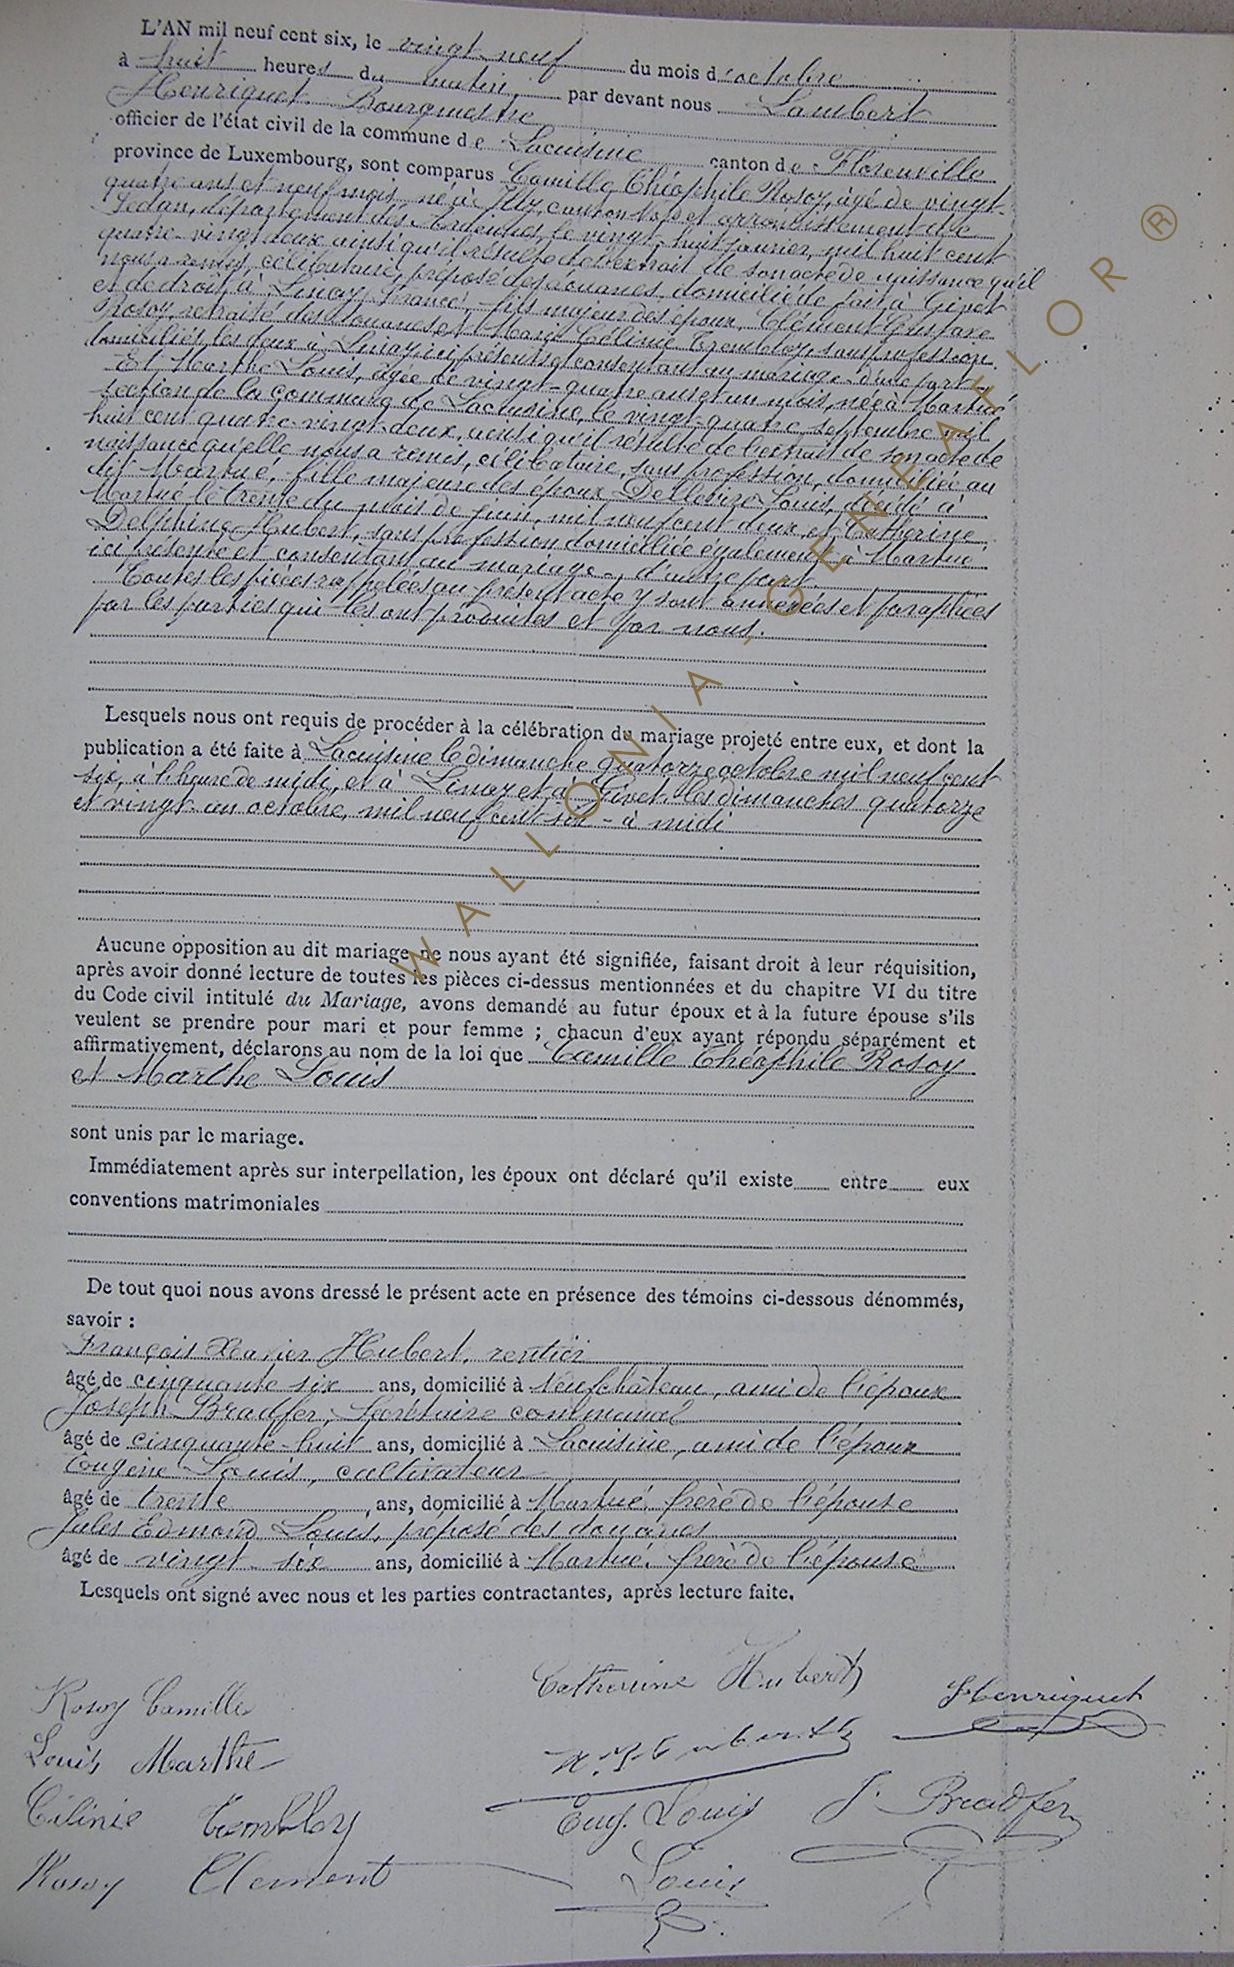 L'AN mil neuf cent six, le vingt-neuf du mois d'octobre
à huit heures du matin, par devant nous Lambert
Henriquet Bourgmestre
officier de l'état civil de la commune de Lacuisine canton de Florenville
province de Luxembourg, sont comparus Camille Théophile Rosoy, âgé de vingt-
quatre ans et neuf mois, né à Illy, canton et arrondissement de
Sedan, département des Ardennes, le vingt-huit janvier mil huit cent
quatre-vingt deux ainsi qu'il résulte de l'extrait de son acte de naissance qu'il
nous a remis, célibataire, préposé des douanes, domicilié de fait à Givet
et de droit à Linay, France, fils majeur des époux Clément Gustave
Rosoy, retraité des douanes et Marie Céline Trembloy, sans profession
domiciliés les deux à Linay, ici présents et consentant au mariage d'une part,
Et Marthe Louis, âgée de vingt-quatre ans et un mois, née à Martué
section de la commune de Lacuisine, le vingt-quatre septembre mil
huit cent quatre-vingt-deux, ainsi qu'il résulte de l'extrait de son acte de
naissance qu'elle nous a remis, célibataire, sans profession, domiciliée au
dit Martué, fille majeure des époux Louis, décédé à
Martué le trente du mois de juin, mil neuf cent deux et Catherine
Delphine Hubert, sans profession domiciliée également à Martué
ici présente et consentant au mariage, d'autre part.
Toutes les pièces rappelées au présent acte y sont annexées et paraphées
par les parties qui les ont produites et par nous.
Lesquels nous ont requis de procéder à la célébration du mariage projeté entre eux, et dont la
publication a été faite à Lacuisine le dimanche quatorze octobre mil neuf cent
six, à l'heure de midi, et à Linay et à Givet les dimanches quatorze
et vingt-un octobre, mil neuf cent six - à midi
Aucune opposition au dit mariage ne nous ayant été signifiée, faisant droit à leur réquisition,
après avoir donné lecture de toutes les pièces ci-dessus mentionnées et du chapitre VI du titre
du Code civil intitulé du Mariage, avons demandé au futur époux et à la future épouse s'ils
veulent se prendre pour mari et pour femme ; chacun d'eux ayant répondu séparément et
affirmativement, déclarons au nom de la loi que Camille Théophile Rosoy
et Marthe Louis
sont unis par le mariage.
Immédiatement après sur interpellation, les époux ont déclaré qu'il existe entre eux
conventions matrimoniales
De tout quoi nous avons dressé le présent acte en présence des témoins ci-dessous dénommés,
savoir :
François Xavier Hubert, rentier
âgé de cinquante six ans, domicilié à Neufchâteau, ami de l'époux
Joseph Bradfer, Secrétaire communal
âgé de cinquante-huit ans, domicilié à Lacuisine, ami de l'époux
Eugène Louis, cultivateur
âgé de trente ans, domicilié à Martué, frère de l'épouse
Jules Edmond Louis, préposé des douanes
âgé de vingt-six ans, domicilié à Martué, frère de l'épouse
Lesquels ont signé avec nous et les parties contractantes, après lecture faite.
Rosoy Camille
Catherine Hubert
Henriquet
Louis Marthe
Célinie Trembloy
Eug. Louis
J. Bradfer
Rosoy Clement
Louis
WALLONIA GENEAFLOR ®